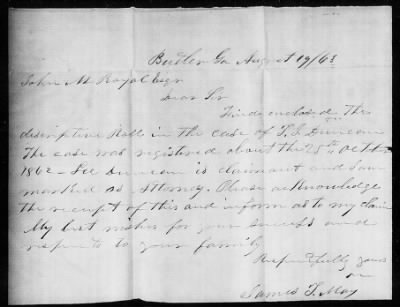 Butler Ga August 19/63
John M Royal Esqr
Dear Sir
Find enclosed The
descriptive Roll in the case of T. J. Duncan
The case was registered about the 25th Octbr
1862 - Duncan is claimant and I am
marked as Attorney. Please acknowledge
the receipt of this and inform as to my claim
My best wishes for your success and
respects to your family
Respectfully yours
James T. May